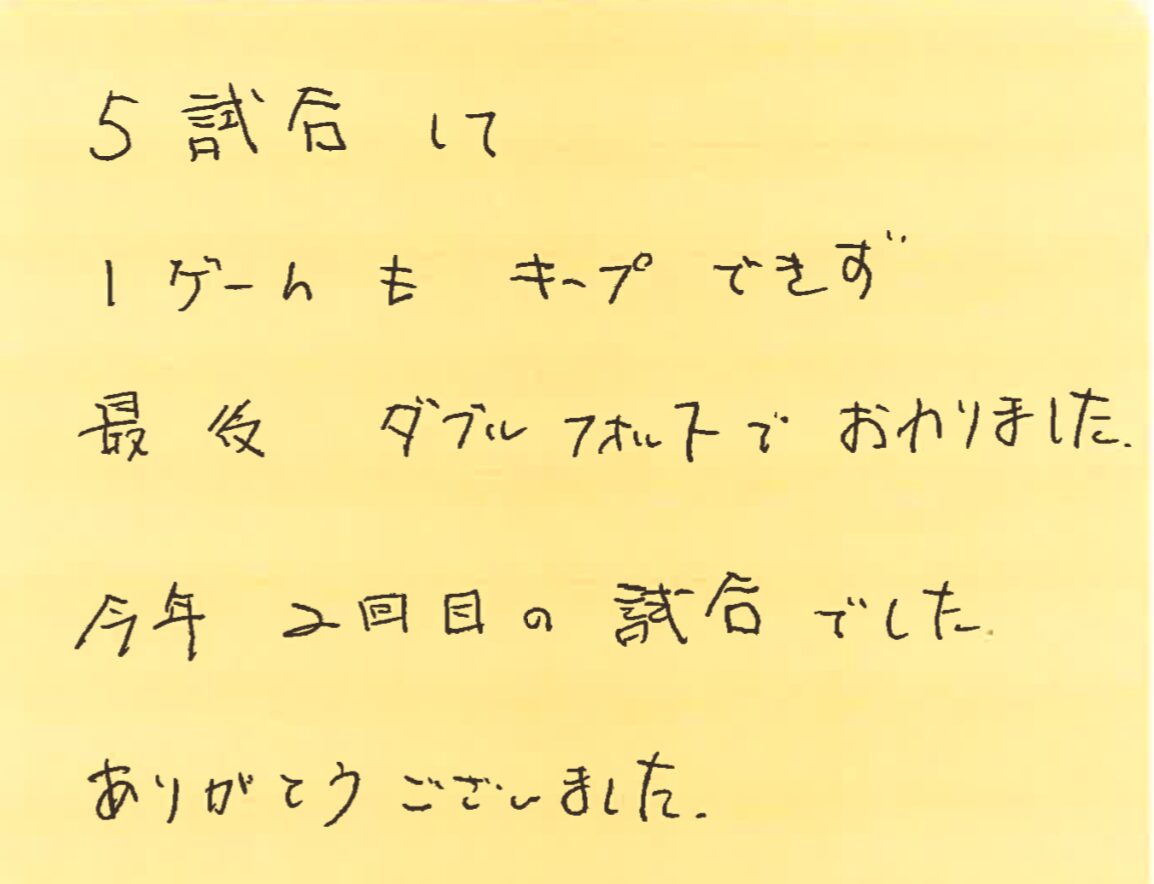 5 試合して
1ゲームも キープできず
最後 ダブルフォルトでおわりました.
今年 2回目の試合でした.
ありがとうございました.